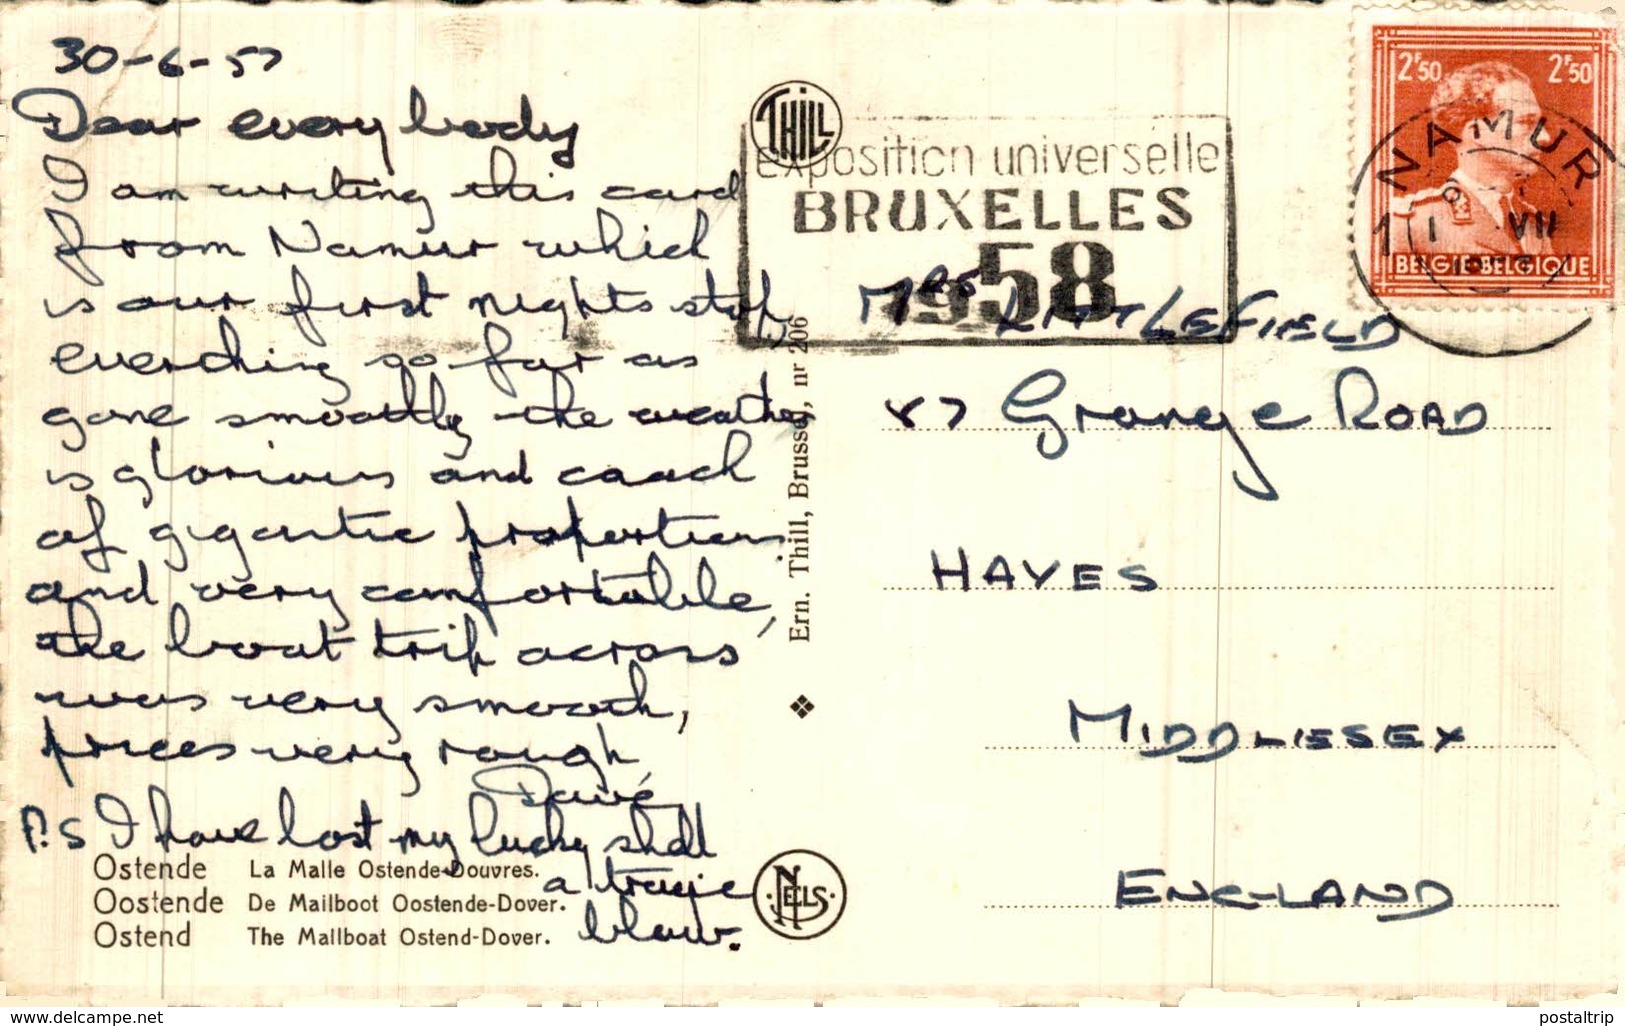 30-6-57
Dear everybody
I am writing this card
from Namur which
is our first nights stop,
everching so far as
gone smoothly the weather
is glorious and coach
of gigantic proportions
and very comfortable,
the boat trip across
was very smooth,
prices very rough,
Dave
P.S I have lost my lucky shell
a tragic
blow.
Ostende La Malle Ostende-Douvres.
Oostende De Mailboot Oostende-Dover.
Ostend The Mailboat Ostend-Dover.
THILL
Ern. Thill, Brussel, nr 206
NELS
exposition universelle
BRUXELLES
1958
2F50 2F50
BELGIE·BELGIQUE
NAMUR
1 VII
MRS LITTLEFIELD
87 Grange ROAD
HAYES
MIDDLESEX
ENGLAND
www.delcampe.net
postaltrip